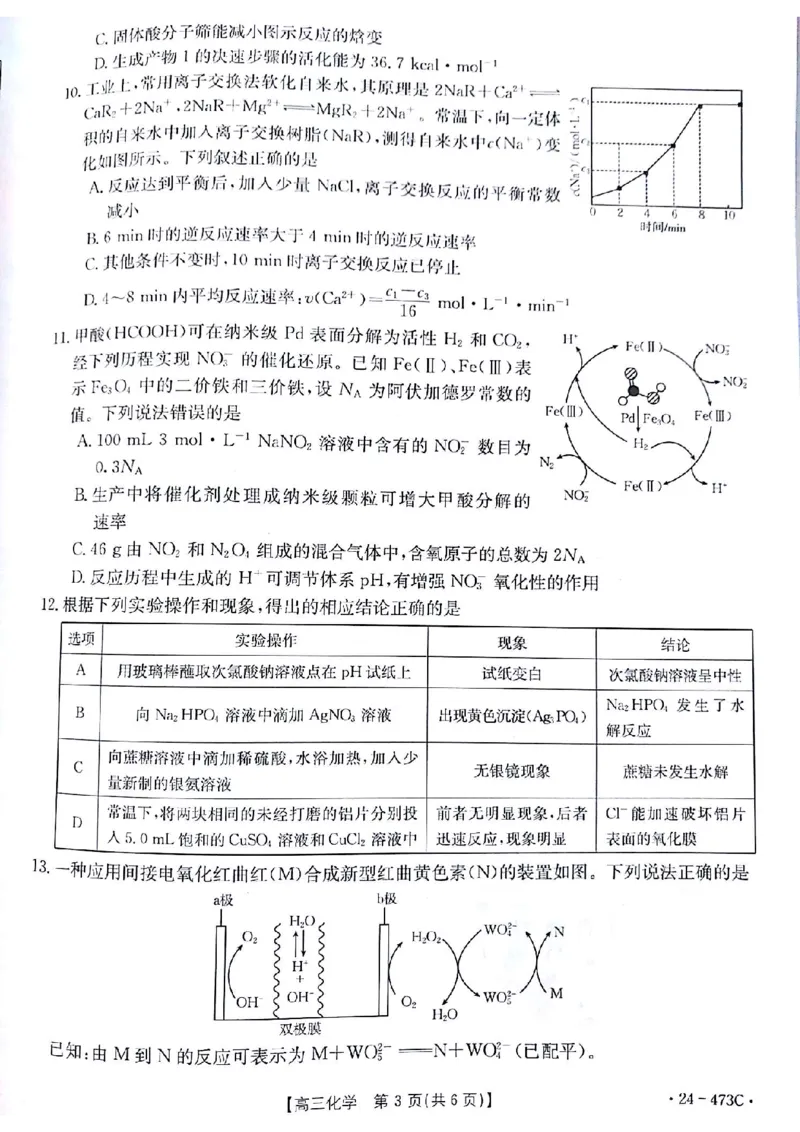 C. 固体酸分子筛能减小图示反应的焓变
D. 生成产物 1 的决速步骤的活化能为 36.7 kcal·mol⁻¹
10. 工业上,常用离子交换法软化自来水,其原理是 2NaR+Ca²⁺⇌
CaR₂+2Na⁺,2NaR+Mg²⁺⇌MgR₂+2Na⁺。常温下,向一定体
积的自来水中加入离子交换树脂(NaR),测得自来水中c(Na⁺)变
化如图所示。下列叙述正确的是
A. 反应达到平衡后,加入少量 NaCl,离子交换反应的平衡常数
减小
B. 6 min 时的逆反应速率大于 4 min 时的逆反应速率
C. 其他条件不变时,10 min 时离子交换反应已停止
D. 4~8 min 内平均反应速率:v(Ca²⁺)=(c₁−c₃)/16 mol·L⁻¹·min⁻¹
c(Na⁺)/(mol·L⁻¹)
c₁
c₂
c₃
0 2 4 6 8 10
时间/min
11. 甲酸(HCOOH)可在纳米级 Pd 表面分解为活性 H₂ 和 CO₂,
经下列历程实现 NO₃⁻ 的催化还原。已知 Fe(Ⅱ)、Fe(Ⅲ)表
示 Fe₃O₄ 中的二价铁和三价铁,设 N_A 为阿伏加德罗常数的
值。下列说法错误的是
A. 100 mL 3 mol·L⁻¹ NaNO₂ 溶液中含有的 NO₂⁻ 数目为
0.3N_A
B. 生产中将催化剂处理成纳米级颗粒可增大甲酸分解的
速率
C. 46 g 由 NO₂ 和 N₂O₄ 组成的混合气体中,含氧原子的总数为 2N_A
D. 反应历程中生成的 H⁺ 可调节体系 pH,有增强 NO₃⁻ 氧化性的作用
H⁺ Fe(Ⅱ) NO₃⁻
NO₂⁻
Fe(Ⅲ) Pd Fe₃O₄ Fe(Ⅲ)
H₂
N₂
NO₂⁻ Fe(Ⅱ) H⁺
12. 根据下列实验操作和现象,得出的相应结论正确的是
选项 实验操作 现象 结论
A 用玻璃棒蘸取次氯酸钠溶液点在 pH 试纸上 试纸变白 次氯酸钠溶液呈中性
B 向 Na₂HPO₄ 溶液中滴加 AgNO₃ 溶液 出现黄色沉淀(Ag₃PO₄) Na₂HPO₄ 发生了水
解反应
C 向蔗糖溶液中滴加稀硫酸,水浴加热,加入少
量新制的银氨溶液 无银镜现象 蔗糖未发生水解
D 常温下,将两块相同的未经打磨的铝片分别投 前者无明显现象,后者 Cl⁻ 能加速破坏铝片
入 5.0 mL 饱和的 CuSO₄ 溶液和 CuCl₂ 溶液中 迅速反应,现象明显 表面的氧化膜
13. 一种应用间接电氧化红曲红(M)合成新型红曲黄色素(N)的装置如图。下列说法正确的是
a极 b极
O₂ H₂O H₂O₂ WO₄²⁻ N
H⁺
+
OH⁻ OH⁻ O₂ WO₅²⁻ M
H₂O
双极膜
已知:由 M 到 N 的反应可表示为 M+WO₅²⁻══N+WO₄²⁻(已配平)。
【高三化学 第 3 页(共 6 页)】
·24-473C·